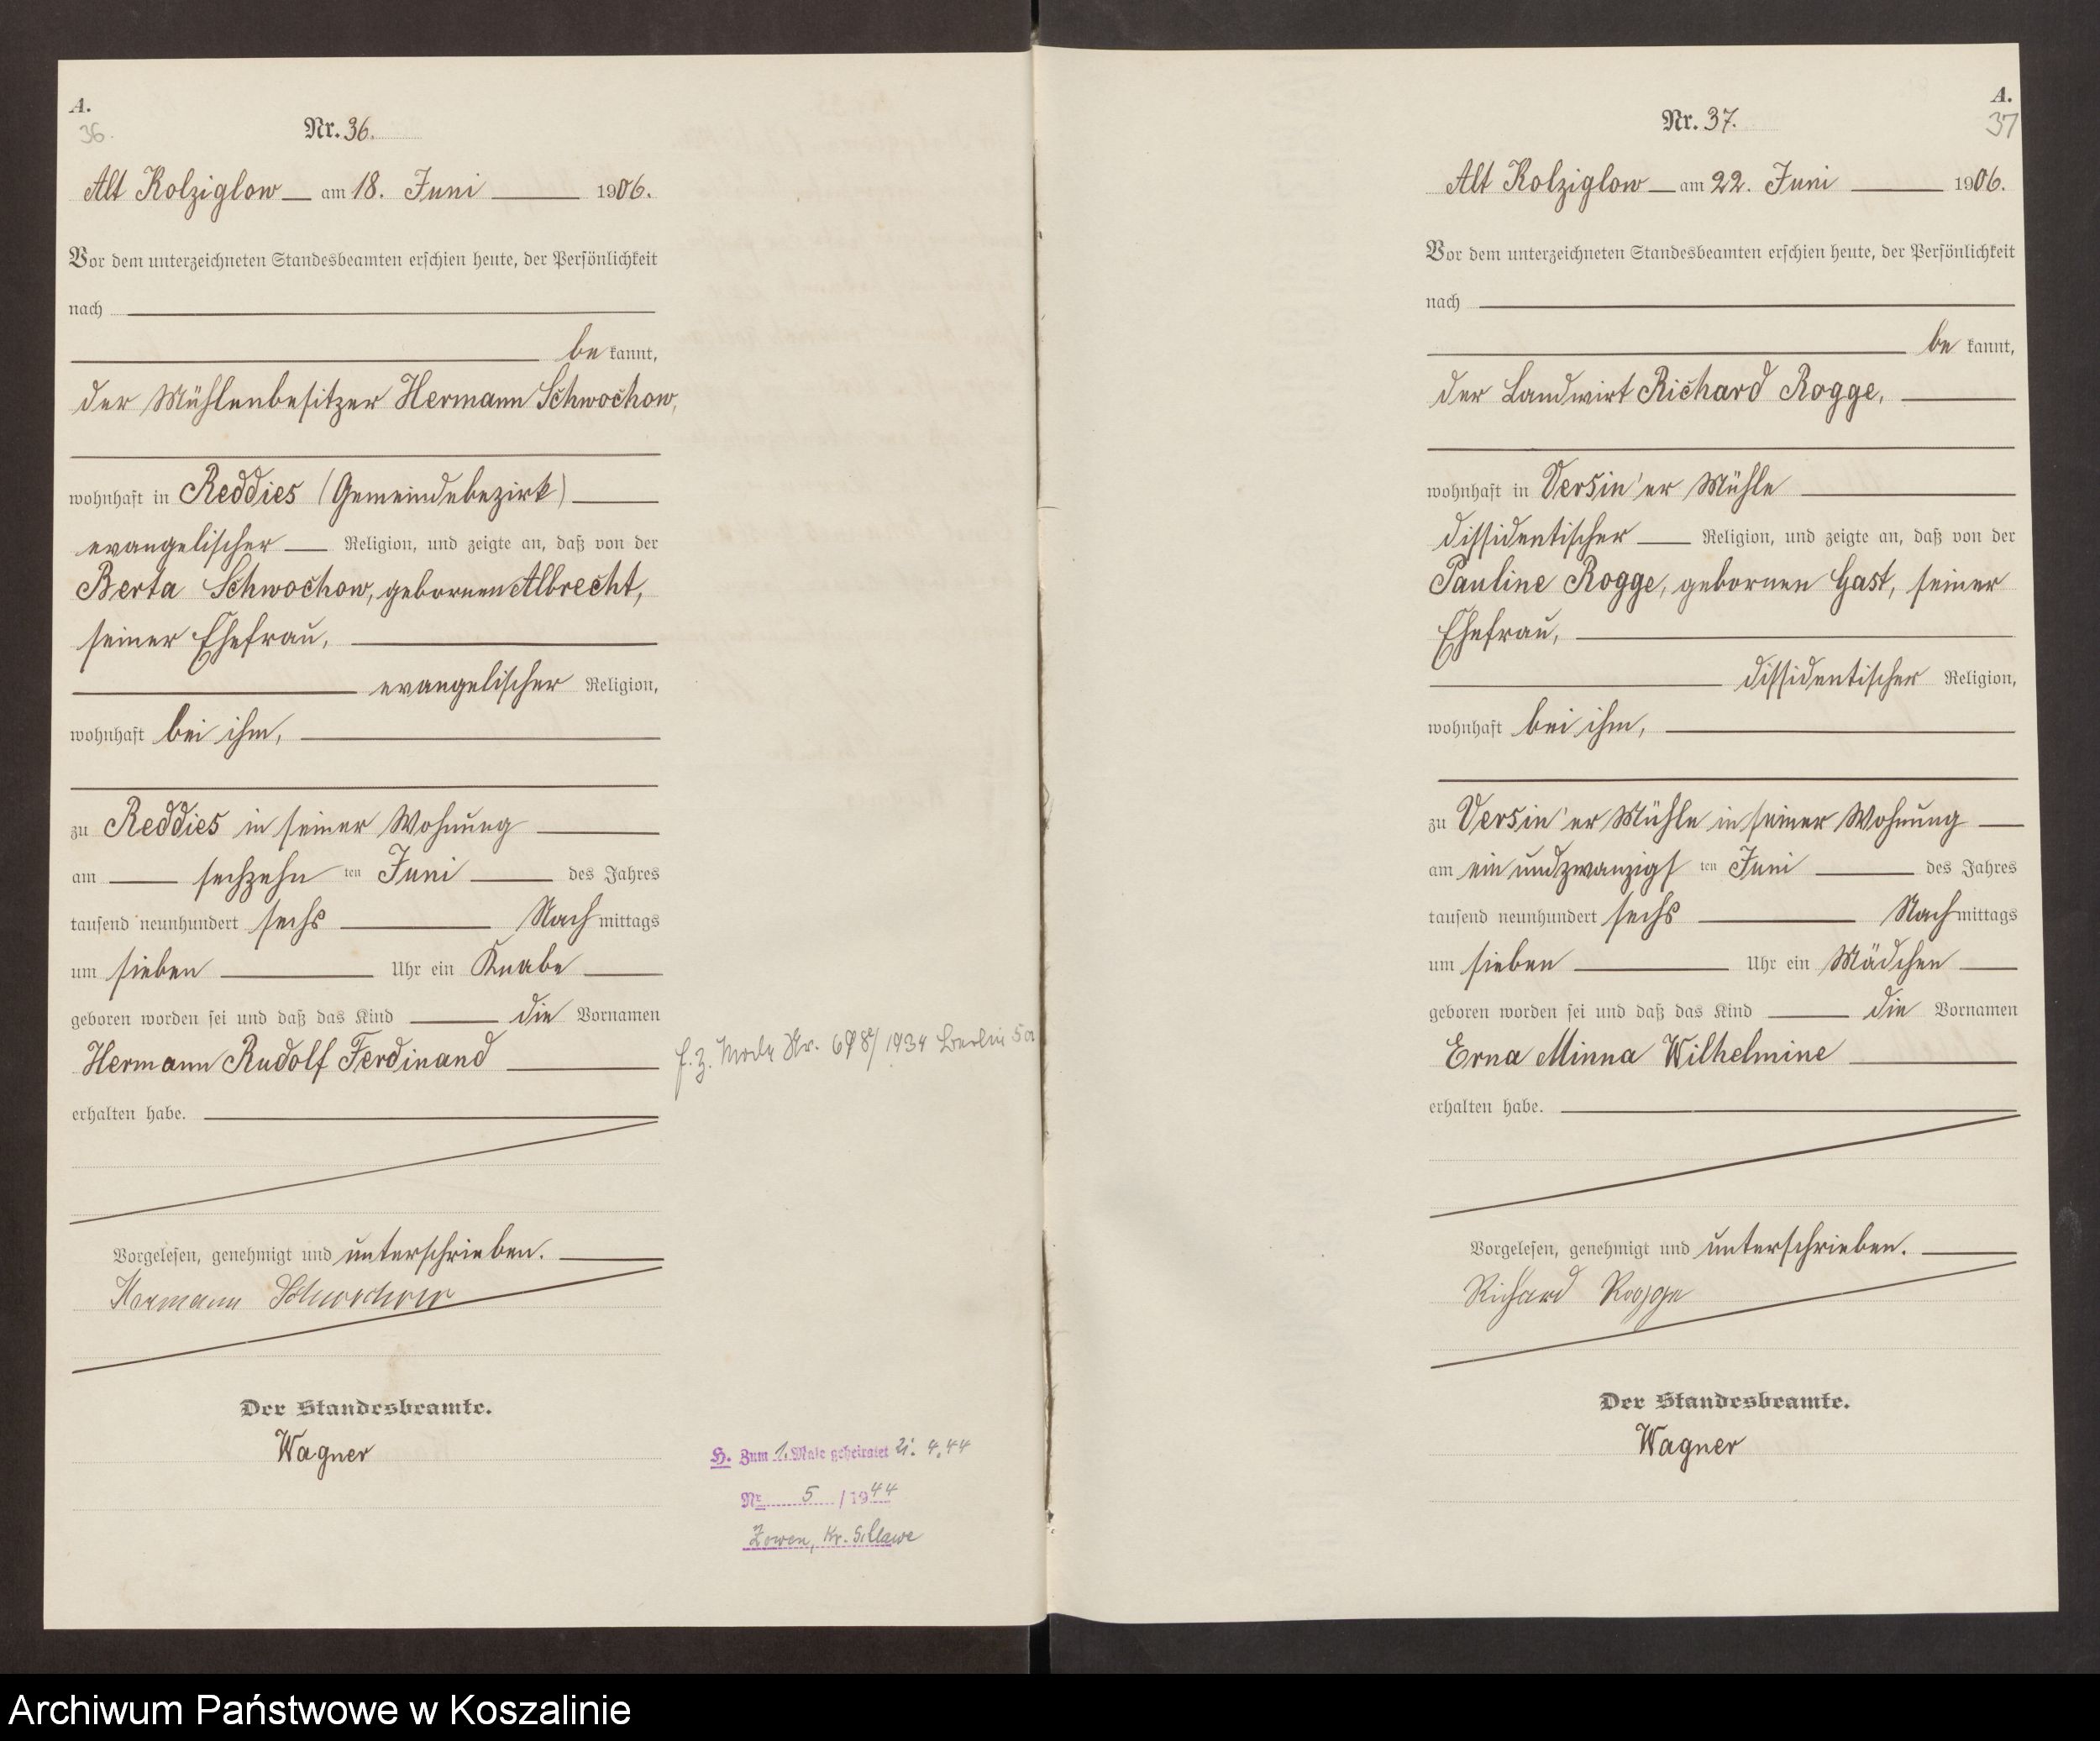 A.
36.
Nr. 36.
Alt Kolziglow am 18. Juni 1906.
Vor dem unterzeichneten Standesbeamten erschien heute, der Persönlichkeit
nach
be kannt,
der Mühlenbesitzer Hermann Schwochow,
wohnhaft in Reddies (Gemeindebezirk)
evangelischer Religion, und zeigte an, daß von der
Berta Schwochow, gebornen Albrecht,
seiner Ehefrau,
evangelischer Religion,
wohnhaft bei ihm,
zu Reddies in seiner Wohnung
am sechzehn ten Juni des Jahres
tausend neunhundert sechs Nach mittags
um sieben Uhr ein Knabe
geboren worden sei und daß das Kind die Vornamen
Hermann Rudolf Ferdinand
erhalten habe.
Vorgelesen, genehmigt und unterschrieben.
Hermann Schwochow
Der Standesbeamte.
Wagner
Nr. 698/1934 Berlin 5a
H. Zum 1. Male geheiratet 4.44
Nr 5 / 1944
Zowen, Kr. Schlawe
A.
37
Nr. 37.
Alt Kolziglow am 22. Juni 1906.
Vor dem unterzeichneten Standesbeamten erschien heute, der Persönlichkeit
nach
be kannt,
der Landwirt Richard Rogge,
wohnhaft in Versin'er Mühle
dissidentischer Religion, und zeigte an, daß von der
Pauline Rogge, gebornen Gast, seiner
Ehefrau,
dissidentischer Religion,
wohnhaft bei ihm,
zu Versin'er Mühle in seiner Wohnung
am ein und zwanzigs ten Juni des Jahres
tausend neunhundert sechs Nach mittags
um sieben Uhr ein Mädchen
geboren worden sei und daß das Kind die Vornamen
Erna Minna Wilhelmine
erhalten habe.
Vorgelesen, genehmigt und unterschrieben.
Richard Rogge
Der Standesbeamte.
Wagner
Archiwum Państwowe w Koszalinie